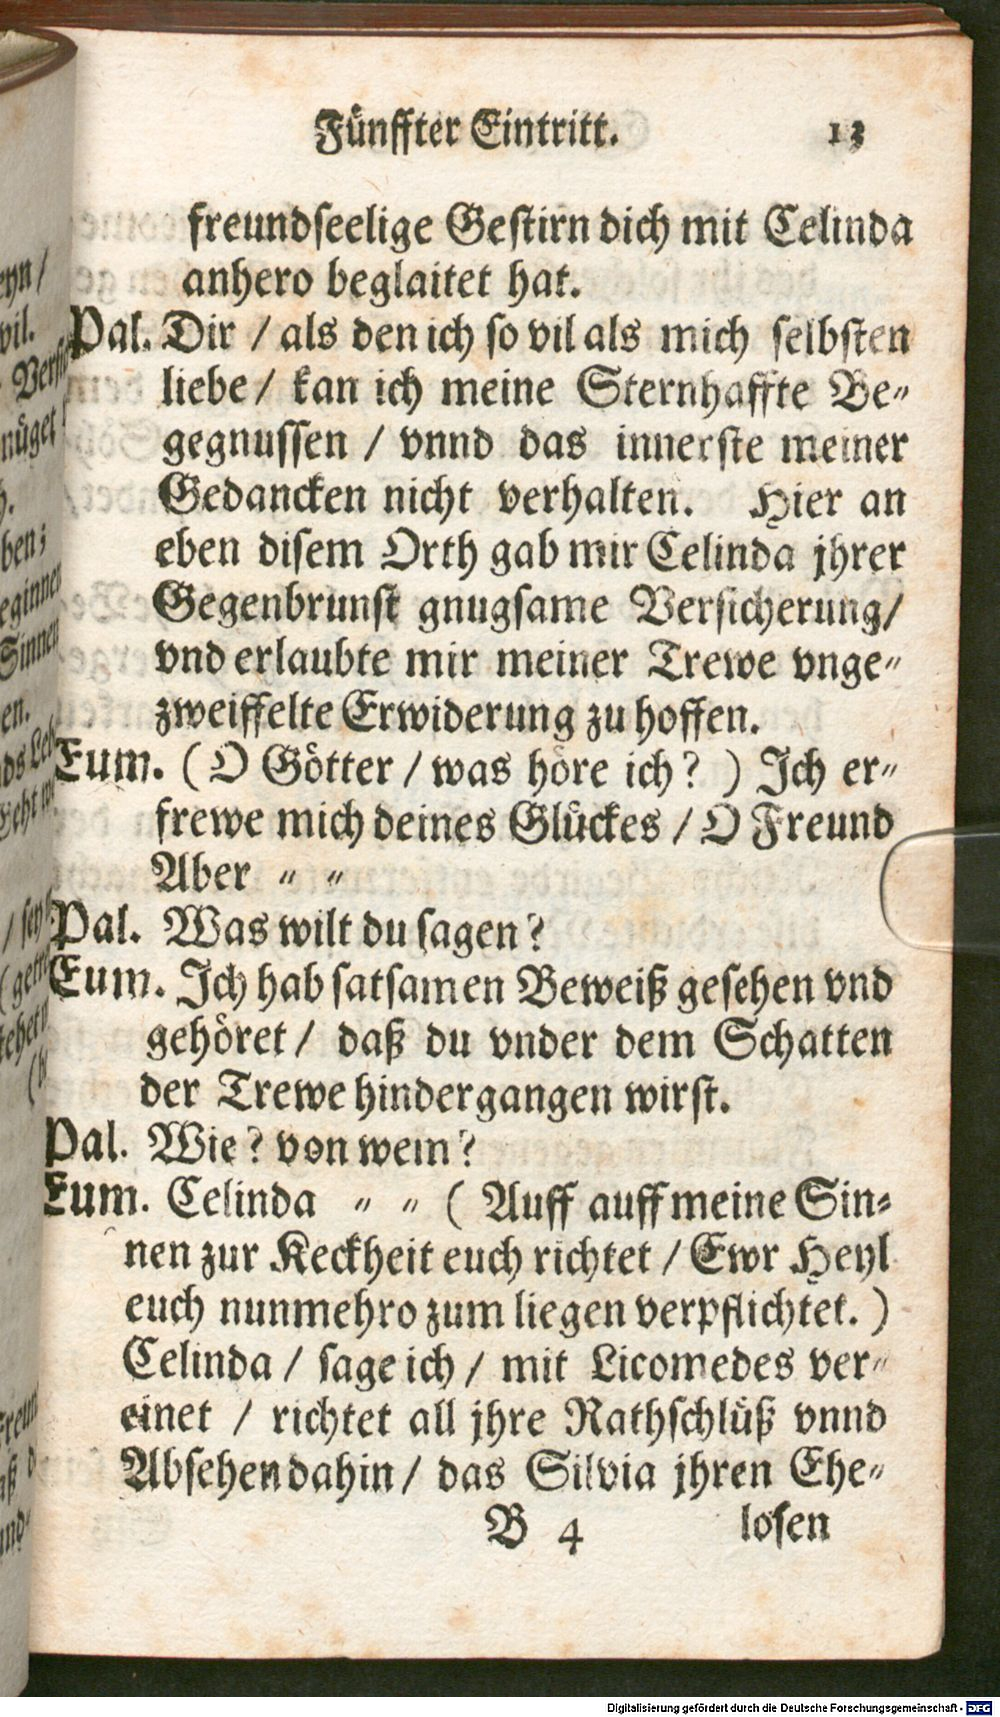 Fünffter Eintritt. 13
freundseelige Gestirn dich mit Celinda
anhero beglaitet hat.
Pal. Dir / als den ich so vil als mich selbsten
liebe / kan ich meine Sternhaffte Be⸗
gegnussen / vnnd das innerste meiner
Gedancken nicht verhalten. Hier an
eben disem Orth gab mir Celinda jhrer
Gegenbrunst gnugsame Versicherung /
vnd erlaubte mir meiner Trewe vnge⸗
zweiffelte Erwiderung zu hoffen.
Eum. ( O Götter / was höre ich? ) Ich er⸗
frewe mich deines Glückes / O Freund
Aber ⸗ ⸗
Pal. Was wilt du sagen?
Eum. Ich hab satsamen Beweiß gesehen vnd
gehöret / daß du vnder dem Schatten
der Trewe hindergangen wirst.
Pal. Wie? von wem?
Eum. Celinda ⸗ ⸗ ( Auff auff meine Sin⸗
nen zur Keckheit euch richtet / Ewr Heyl
euch nunmehro zum liegen verpflichtet. )
Celinda / sage ich / mit Licomedes ver⸗
einet / richtet all jhre Rathschlüß vnnd
Absehen dahin / das Silvia jhren Ehe⸗
B 4 losen
Digitalisierung gefördert durch die Deutsche Forschungsgemeinschaft - DFG